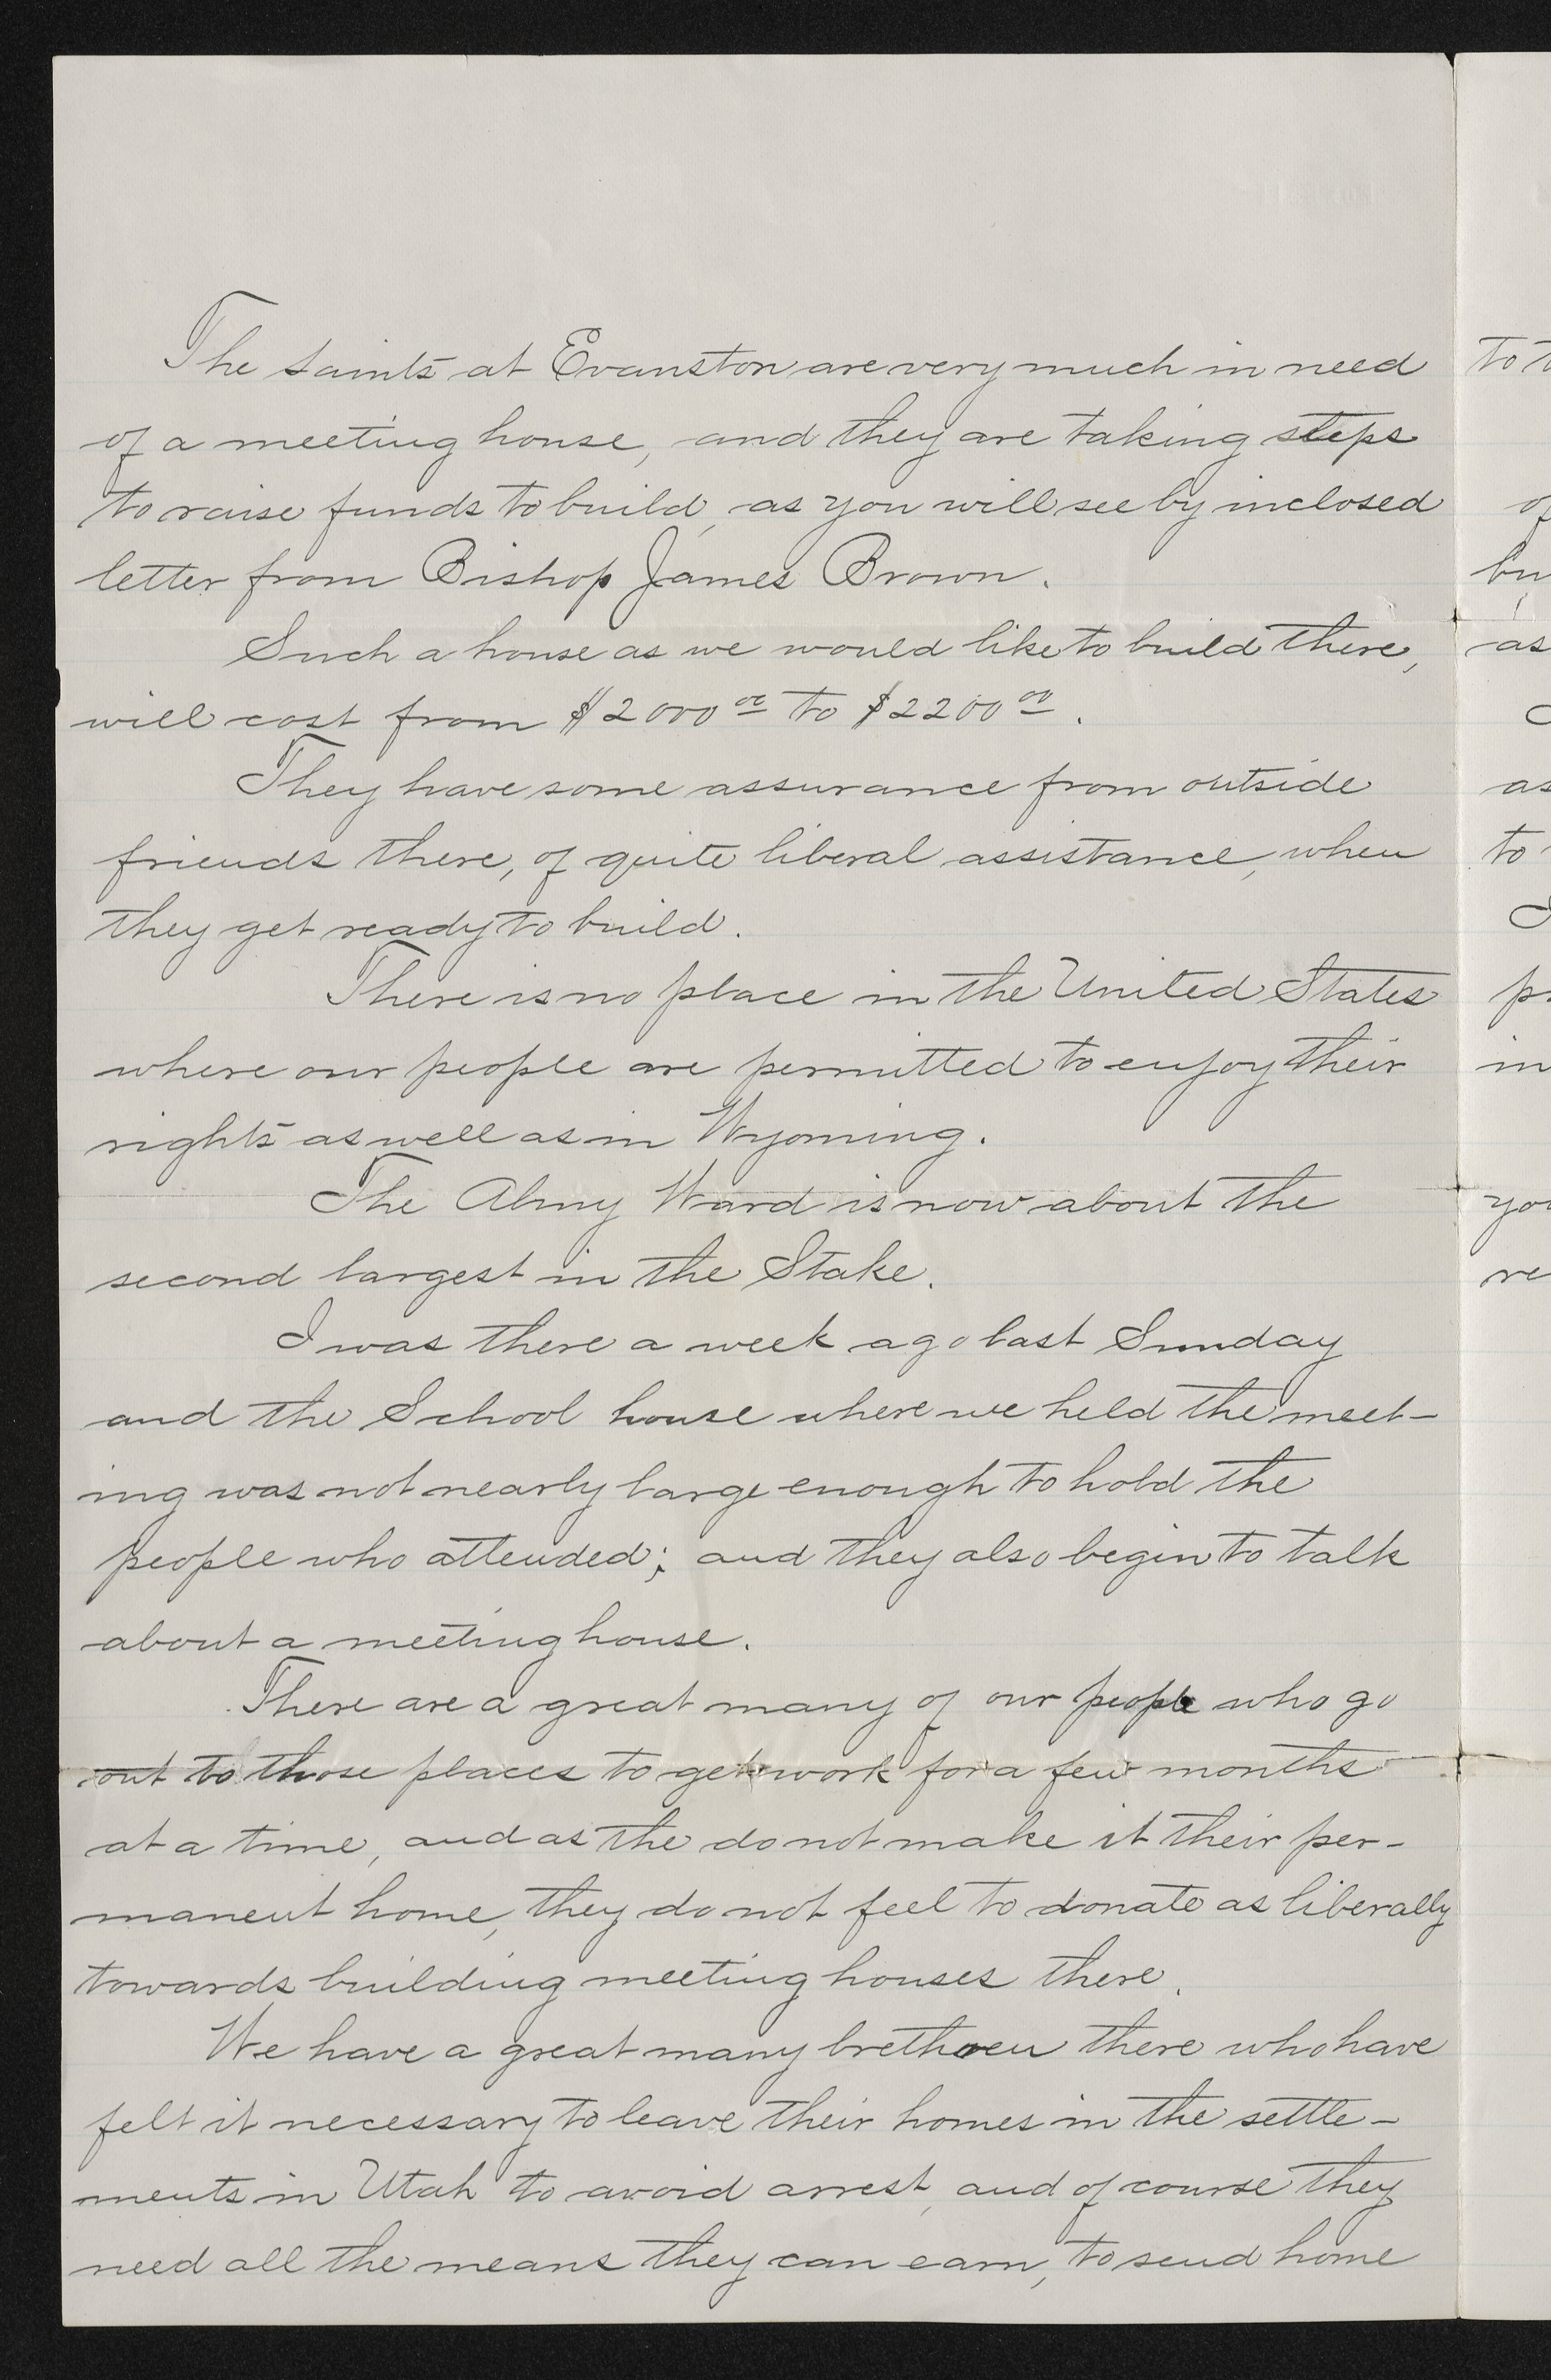 The saints at Evanston are very much in need
of a meeting house, and they are taking steps
to raise funds to build, as you will see by inclosed
letter from Bishop James Brown.
Such a house as we would like to build there,
will cost from $2000 00 to $2200 00.
They have some assurance from outside
friends there, of quite liberal assistance, when
they get ready to build.
There is no place in the United States
where our people are permitted to enjoy their
rights as well as in Wyoming.
The Almy Ward is now about the
second largest in the Stake.
I was there a week ago last Sunday
and the School house where we held the meet-
ing was not nearly large enough to hold the
people who attended; and they also begin to talk
about a meeting house.
There are a great many of our people who go
out to those places to get work for a few months
at a time, and as the do not make it their per-
manent home, they do not feel to donate as liberally
towards building meeting houses there.
We have a great many brethren there who have
felt it necessary to leave their homes in the settle-
ments in Utah to avoid arrest, and of course they
need all the means they can earn, to send home
to
of
bu
as
as
to
in
you
re